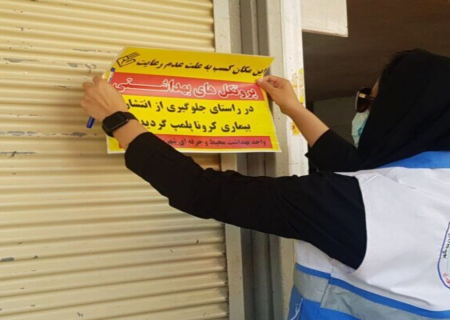 این مکان کسب به علت عدم رعایت
پروتکل های بهداشتی
در راستای جلوگیری از انتشار
بیماری کرونا پلمپ گردید
واحد بهداشت محیط و حرفه ای